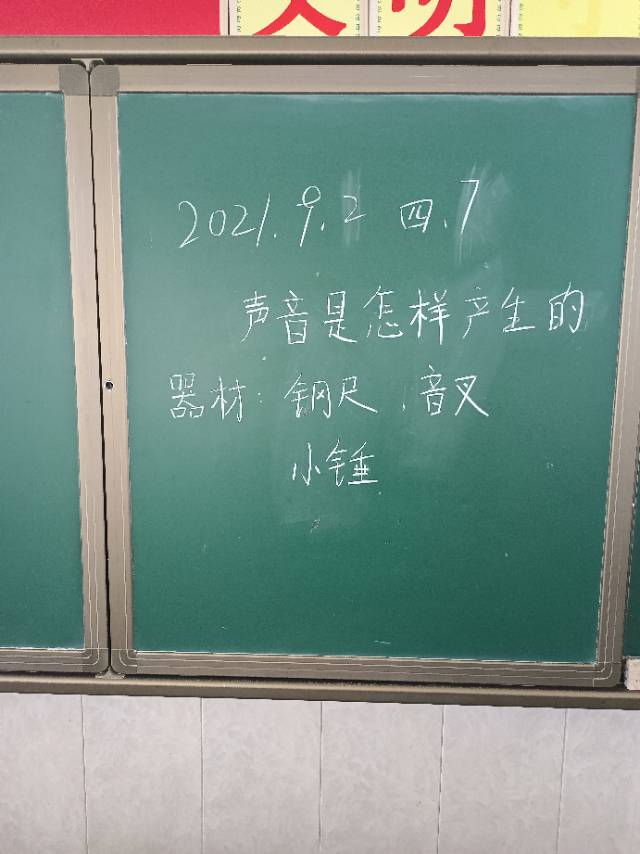 2021.9.2 四.7
声音是怎样产生的
器材：钢尺、音叉
小锤